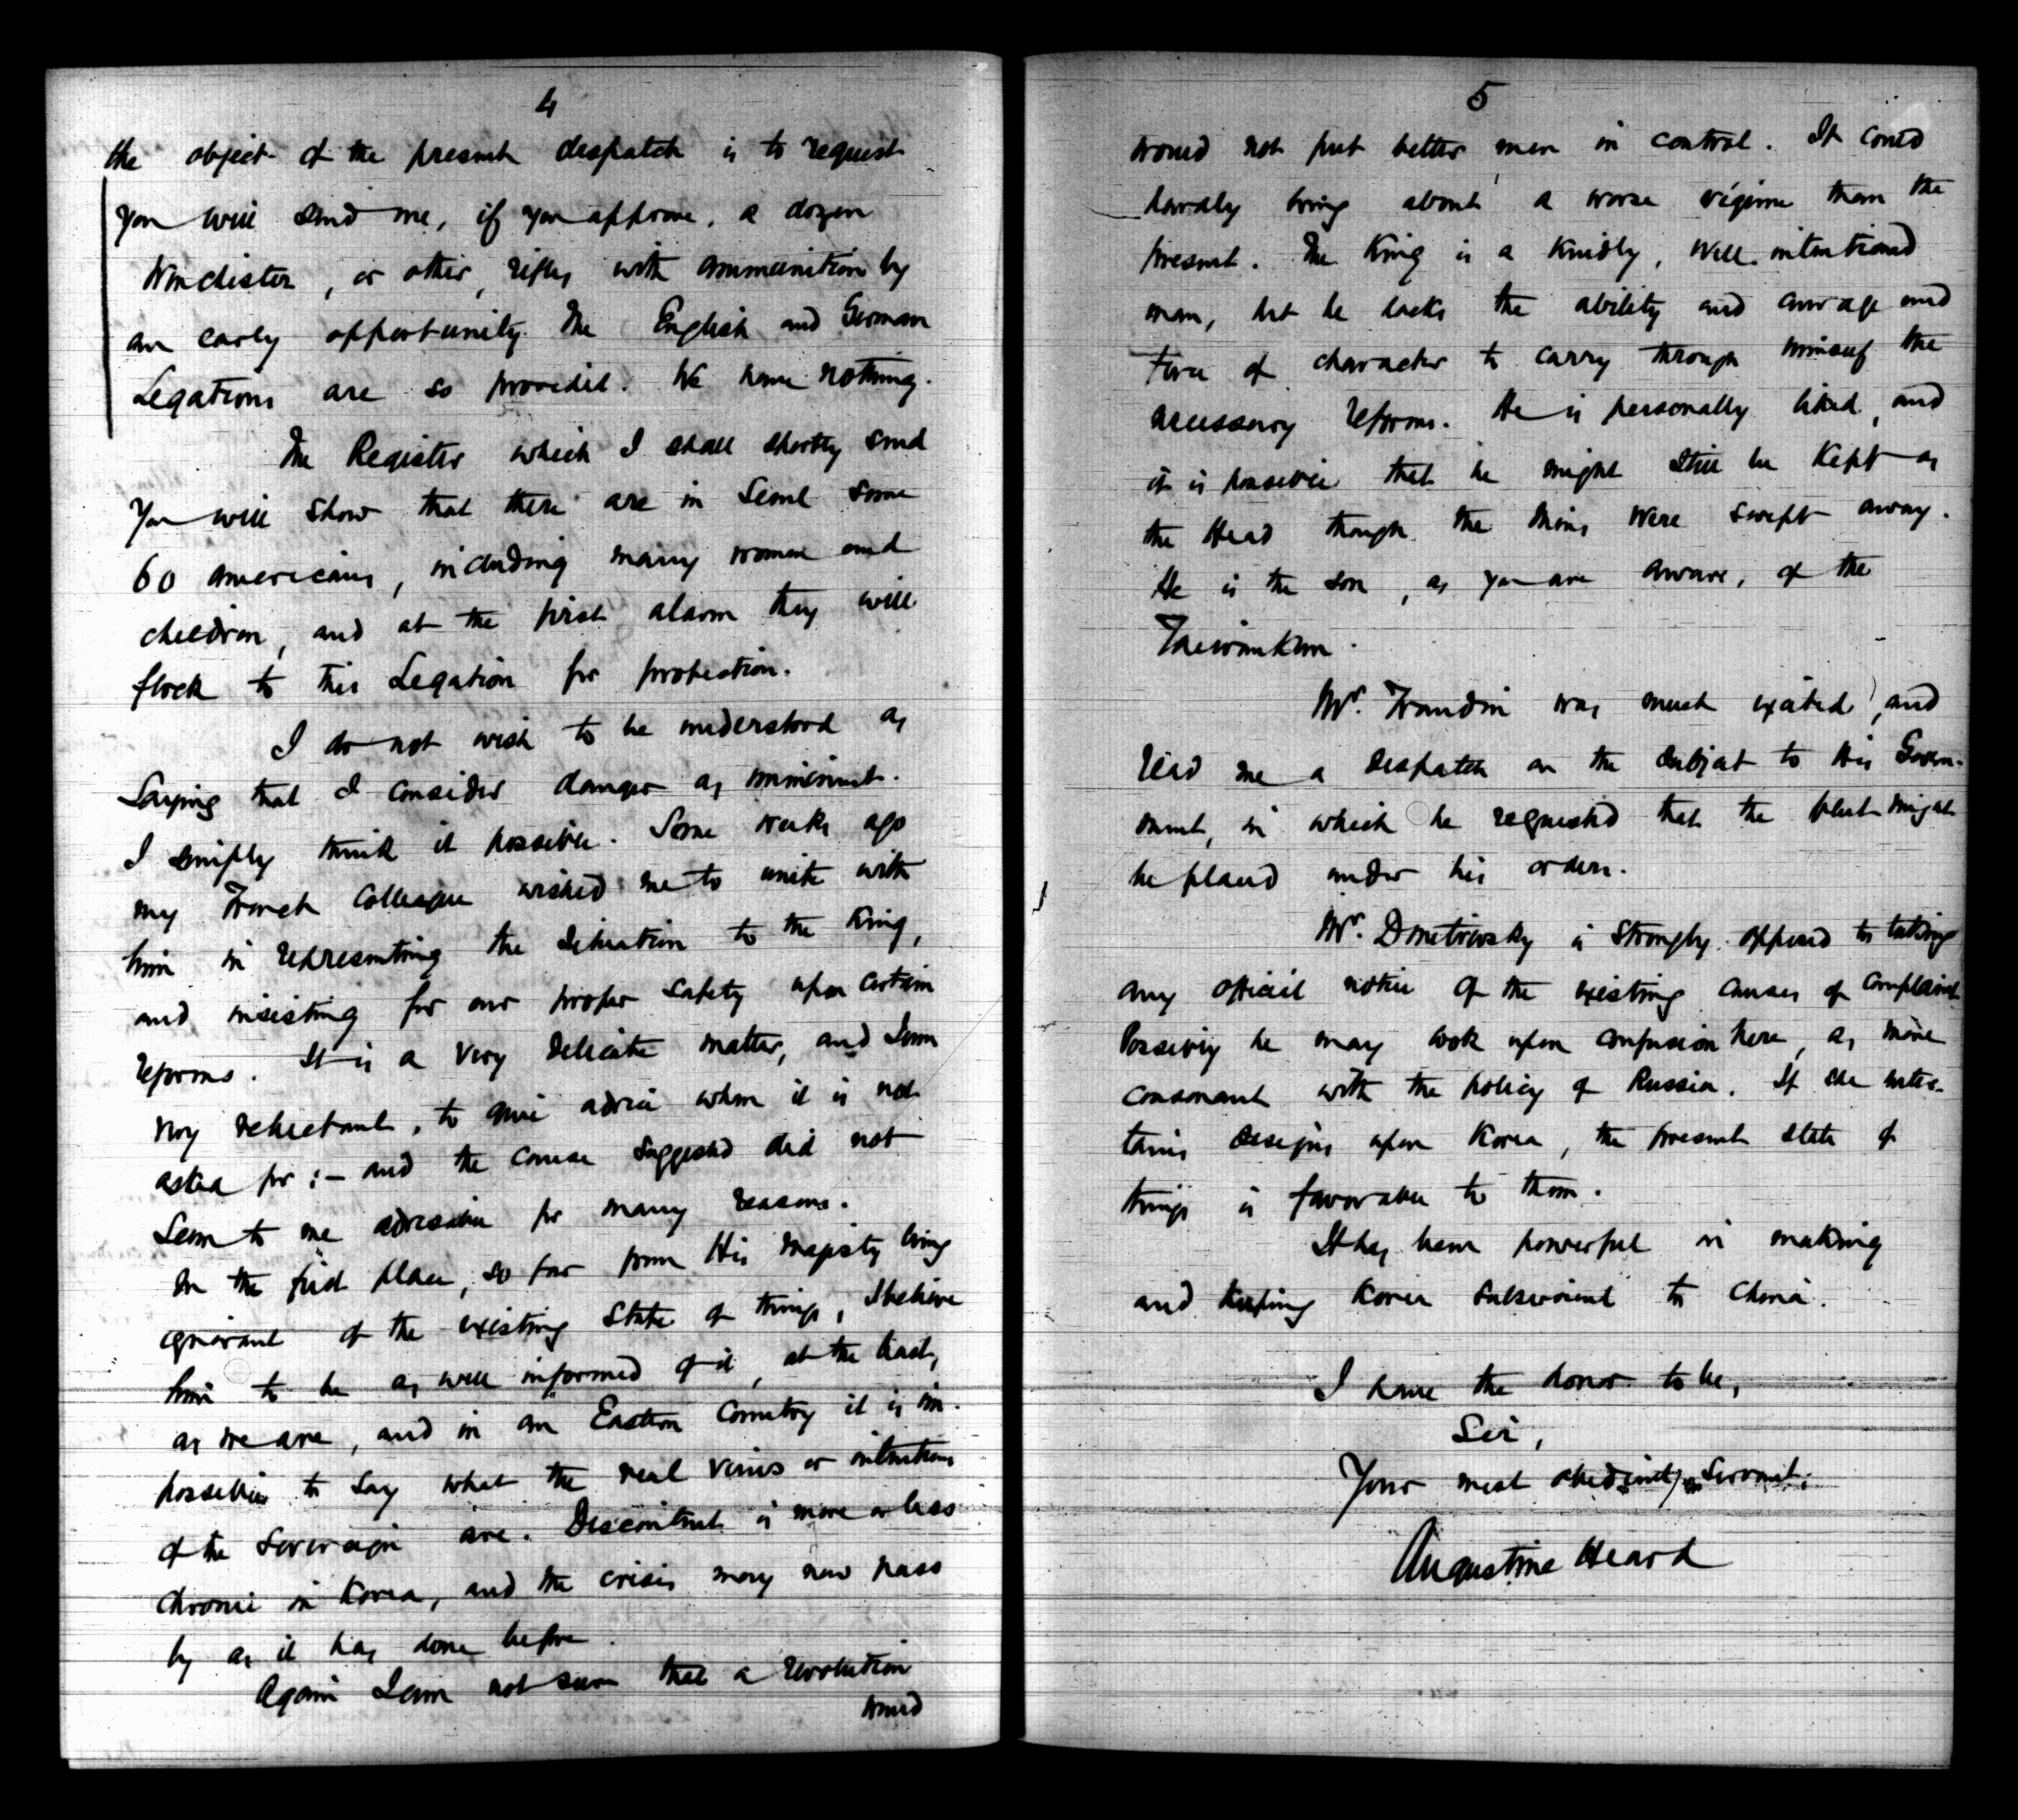 4
the object of the present despatch is to request
you will send me, if you approve, a dozen
Winchester, or other, rifles with ammunition by
an early opportunity. The English and German
Legations are so provided. We have nothing.
The Register which I shall shortly send
you will show that there are in Seoul some
60 Americans, including many women and
children, and at the first alarm they will
flock to this Legation for protection.
I do not wish to be understood as
saying that I consider danger as imminent.
I simply think it possible. Some weeks ago
my French Colleague wished me to unite with
him in representing the situation to the King,
and insisting for our proper safety upon certain
reforms. It is a very delicate matter, and I am
very reluctant, to give advice when it is not
asked for :– and the course suggested did not
seem to me advisable for many reasons.
In the first place, so far from His Majesty being
ignorant of the existing state of things, I believe
him to be as well informed of it, at the least,
as we are, and in an Eastern Country it is im-
possible to say what the real views or intentions
of the Sovereign are. Discontent is more or less
chronic in Korea, and the crisis may now pass
by as it has done before.
Again I am not sure that a revolution
would
5
would not put better men in control. It could
hardly bring about a worse régime than the
present. The King is a kindly, well intentioned
man, but he lacks the ability and courage and
force of character to carry through himself the
necessary reforms. He is personally liked, and
it is possible that he might still be kept as
the Head though the Mins were swept away.
He is the son, as you are aware, of the
Taiwankun.
Mr. Frandin was much excited, and
read me a despatch on the subject to his Govern-
ment, in which he requested that the fleet might
be placed under his orders.
Mr. Dmitrevsky is strongly opposed to taking
any official notice of the existing causes of complaint.
Possibly he may look upon confusion here, as more
consonant with the policy of Russia. If she enter-
tains designs upon Korea, the present state of
things is favorable to them.
It has been powerful in making
and keeping Korea subservient to China.
I have the honor to be,
Sir,
Your most obedient Servant,
Augustine Heard